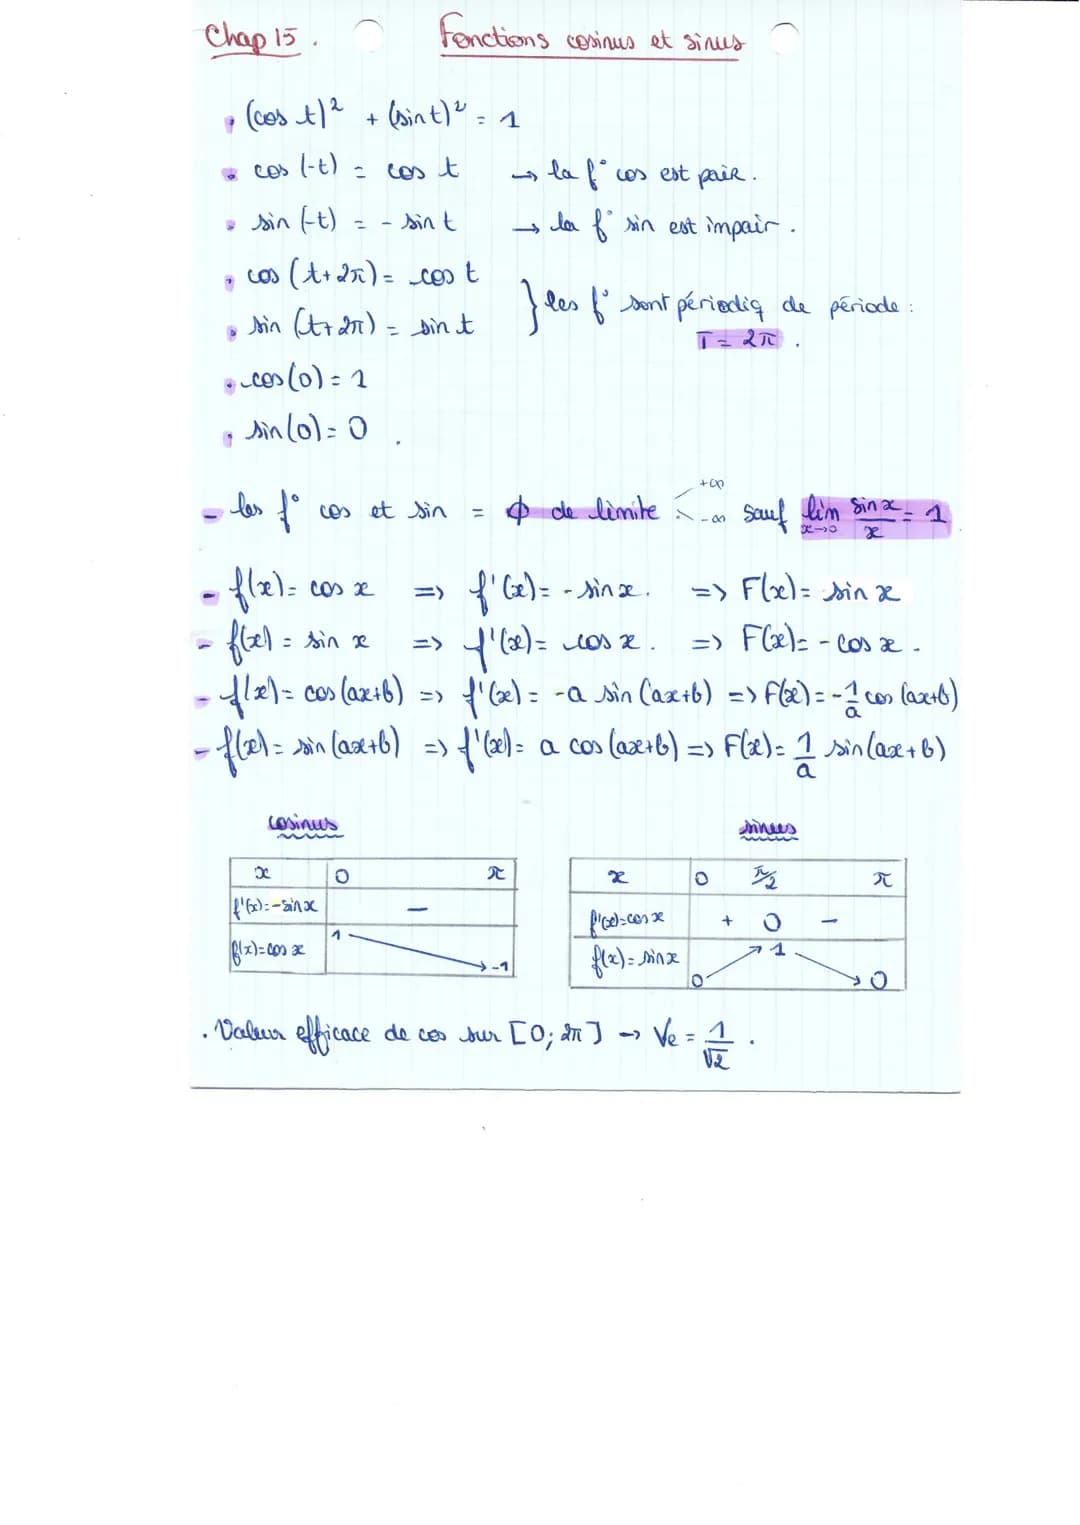 Chap 15. Fonctions cosinus et sinus
• (cos t)² + (sin t)² = 1
• cos (-t) = cos t → la f° cos est pair.
• sin (-t) = - sin t → la f° sin est impair.
• cos (t+2π) = cos t
} les f° sont périodiq de période :
• sin (t+2π) = sin t
T = 2π.
• cos(0) = 1
• sin(0) = 0.
- les f° cos et sin = ϕ de limite +∞ -∞ sauf lim x→0 sin x / x = 1
- f(x) = cos x => f'(x) = - sin x. => F(x) = sin x
- f(x) = sin x => f'(x) = cos x. => F(x) = - cos x.
- f(x) = cos (ax+b) => f'(x) = -a sin (ax+b) => F(x) = - 1/a cos (ax+b)
- f(x) = sin (ax+b) => f'(x) = a cos (ax+b) => F(x) = 1/a sin (ax+b)
cosinus
x 0 π
f'(x) = - sin x −
f(x) = cos x 1 -1
sinus
x 0 π/2 π
f'(x) = cos x + 0 −
f(x) = sin x 0 1 0
. Valeur efficace de cos sur [0; 2π] → Ve = 1/√2.